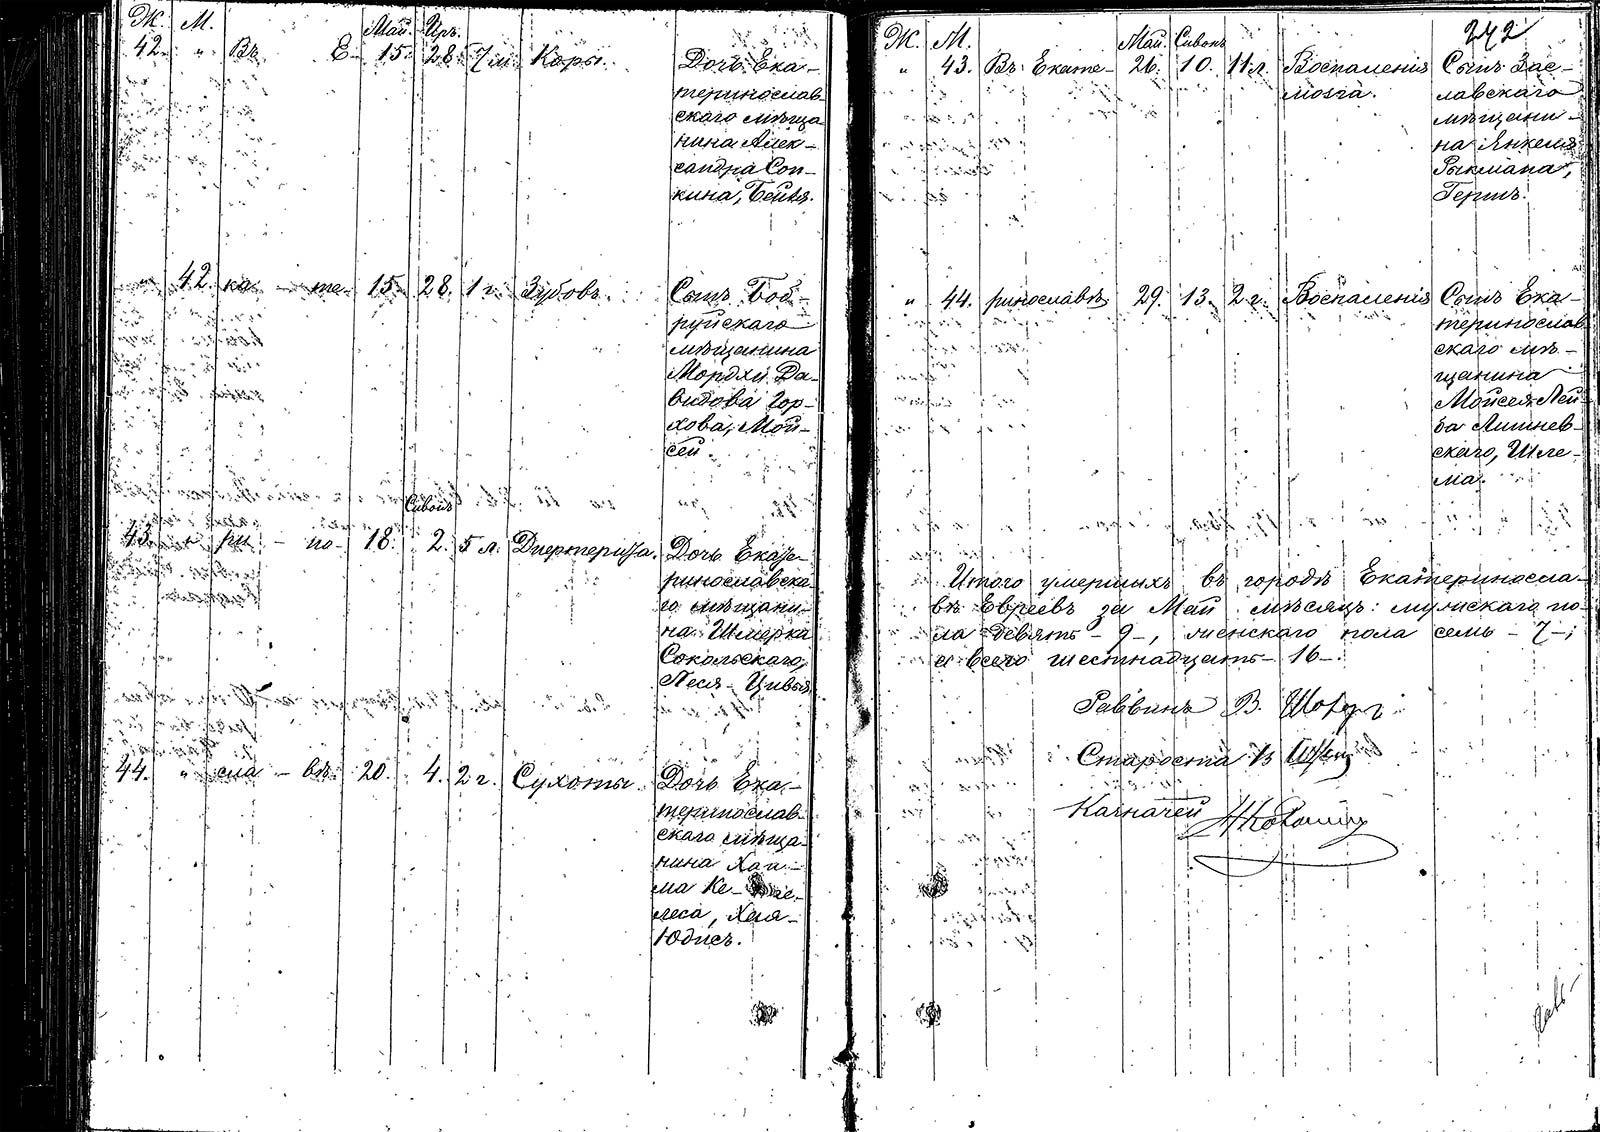 Ж. М. Май. Иръ.
42. „ Въ Е- 15. 28. 7 м. Корь. Дочь Ека-
теринослав-
скаго мѣща-
нина Алек-
сандра Соп-
кина, Бейля.
„ 42. ка - те- 15. 28. 1 г. Зубовъ. Сынъ Боб-
руйскаго
мѣщанина
Мордхи Да-
видова Гор-
хова, Мой-
сей.
Сивонъ
43. „ ри - но- 18. 2. 5 л. Диертерита. Дочь Екате-
ринославска-
го мѣщани-
на Шмерка
Сокольскаго,
Песя-Цивья
44. „ сла - вѣ. 20. 4. 2 г. Сухоты. Дочь Ека-
теринослав-
скаго мѣща-
нина Хаи-
ма
леса, Хая-
Юдисъ.
242
Ж. М. Май. Сивонъ
„ 43. Въ Екате- 26. 10. 11 л. Воспаленія Сынъ Зас-
мозга. лавскаго
мѣщани-
на Янкеля
Рыкмана,
Гершъ.
„ 44. ринославѣ 29. 13. 2 г. Воспаленія Сынъ Ека-
теринослав-
скаго мѣ-
щанина
Мойсея Лей-
ба Лишнев-
скаго, Шле-
ма.
Итого умершихъ въ городѣ Екатериносла-
вѣ Евреевъ за Май мѣсяцъ: мужскаго по-
ла девять - 9 -, женскаго пола семь - 7 -;
а всего шестнадцать - 16 -.
Раввинъ В. Шахоръ
Староста
Казначей